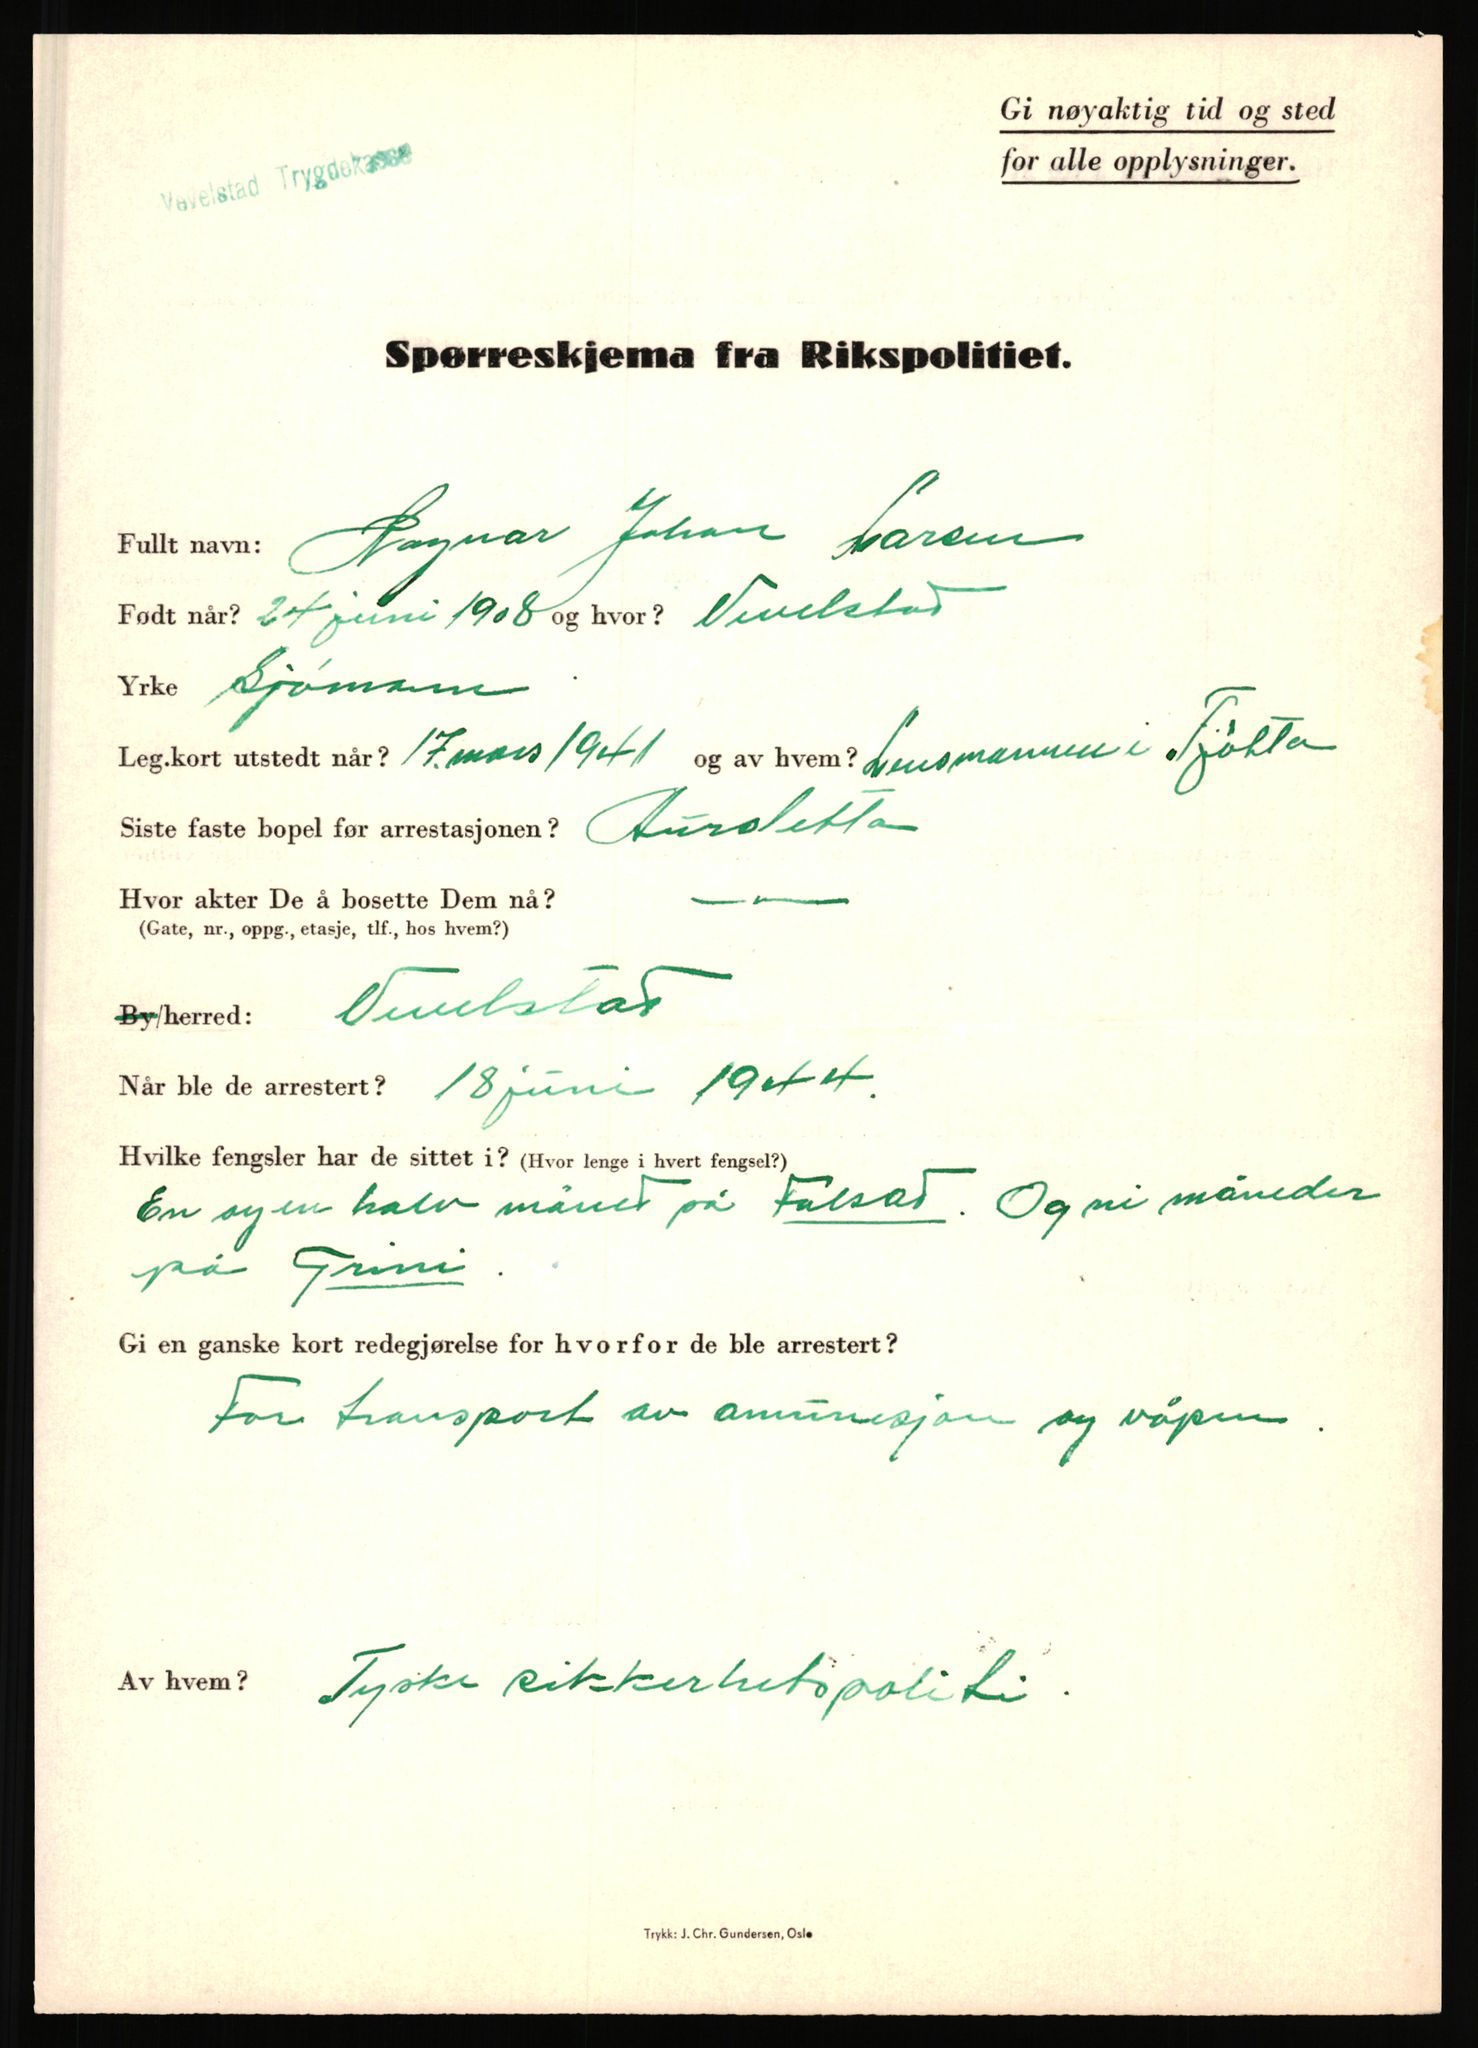 Gi nøyaktig tid og sted
for alle opplysninger.
Vevelstad Trygdekasse
Spørreskjema fra Rikspolitiet.
Fullt navn: Ragnar Johan Larsen
Født når? 24 juni 1908 og hvor? Vevelstad
Yrke Sjömann
Leg.kort utstedt når? 17. mars 1941 og av hvem? Lensmannen i Tjötta
Siste faste bopel før arrestasjonen?
Hvor akter De å bosette Dem nå? — " —
(Gate, nr., oppg., etasje, tlf., hos hvem?)
By/herred: Vevelstad
Når ble de arrestert? 18 juni 1944.
Hvilke fengsler har de sittet i? (Hvor lenge i hvert fengsel?)
En og en halv måned på Falsad. Og ni måneder
på Grini.
Gi en ganske kort redegjørelse for hvorfor de ble arrestert?
For transport av amunesjon og våpen.
Av hvem? Tyske sikkerhetspoliti.
Trykk: J. Chr. Gundersen, Oslo